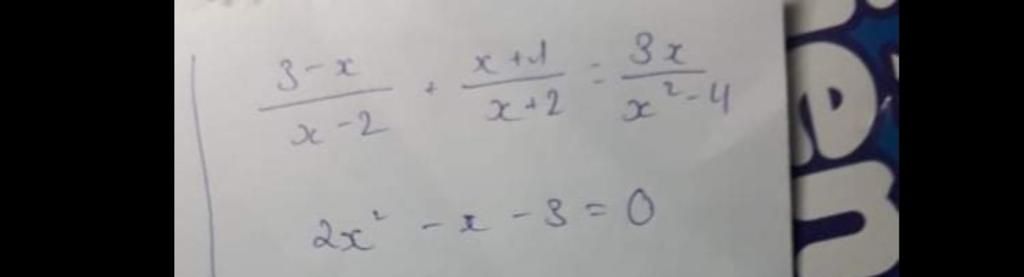 (3-x)/(x-2) + (x+1)/(x+2) = 3x/(x²-4)
2x² - x - 3 = 0